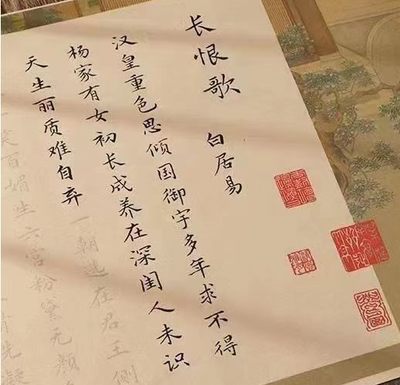 长恨歌 白居易
汉皇重色思倾国御宇多年求不得
杨家有女初长成养在深闺人未识
天生丽质难自弃一朝选在君王侧
笑百媚生六宫粉黛无颜